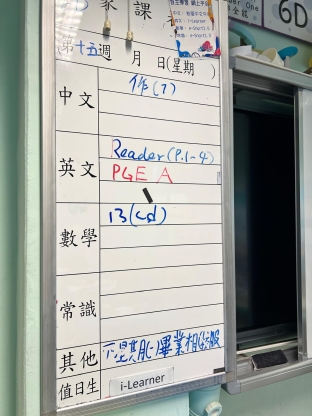 家課
6D
第十五週 月 日(星期 )
中文 作(7)
英文 Reader(P.1-4)
PGE A
數學 13(cd)
常識
其他 畢業相
值日生 i-Learner